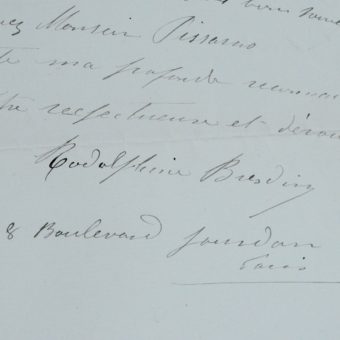 Monsieur Pissarro
ma profonde
respectueuse et dévou
Rodolphine Bresdin
8 Boulevard Jourdan
Paris